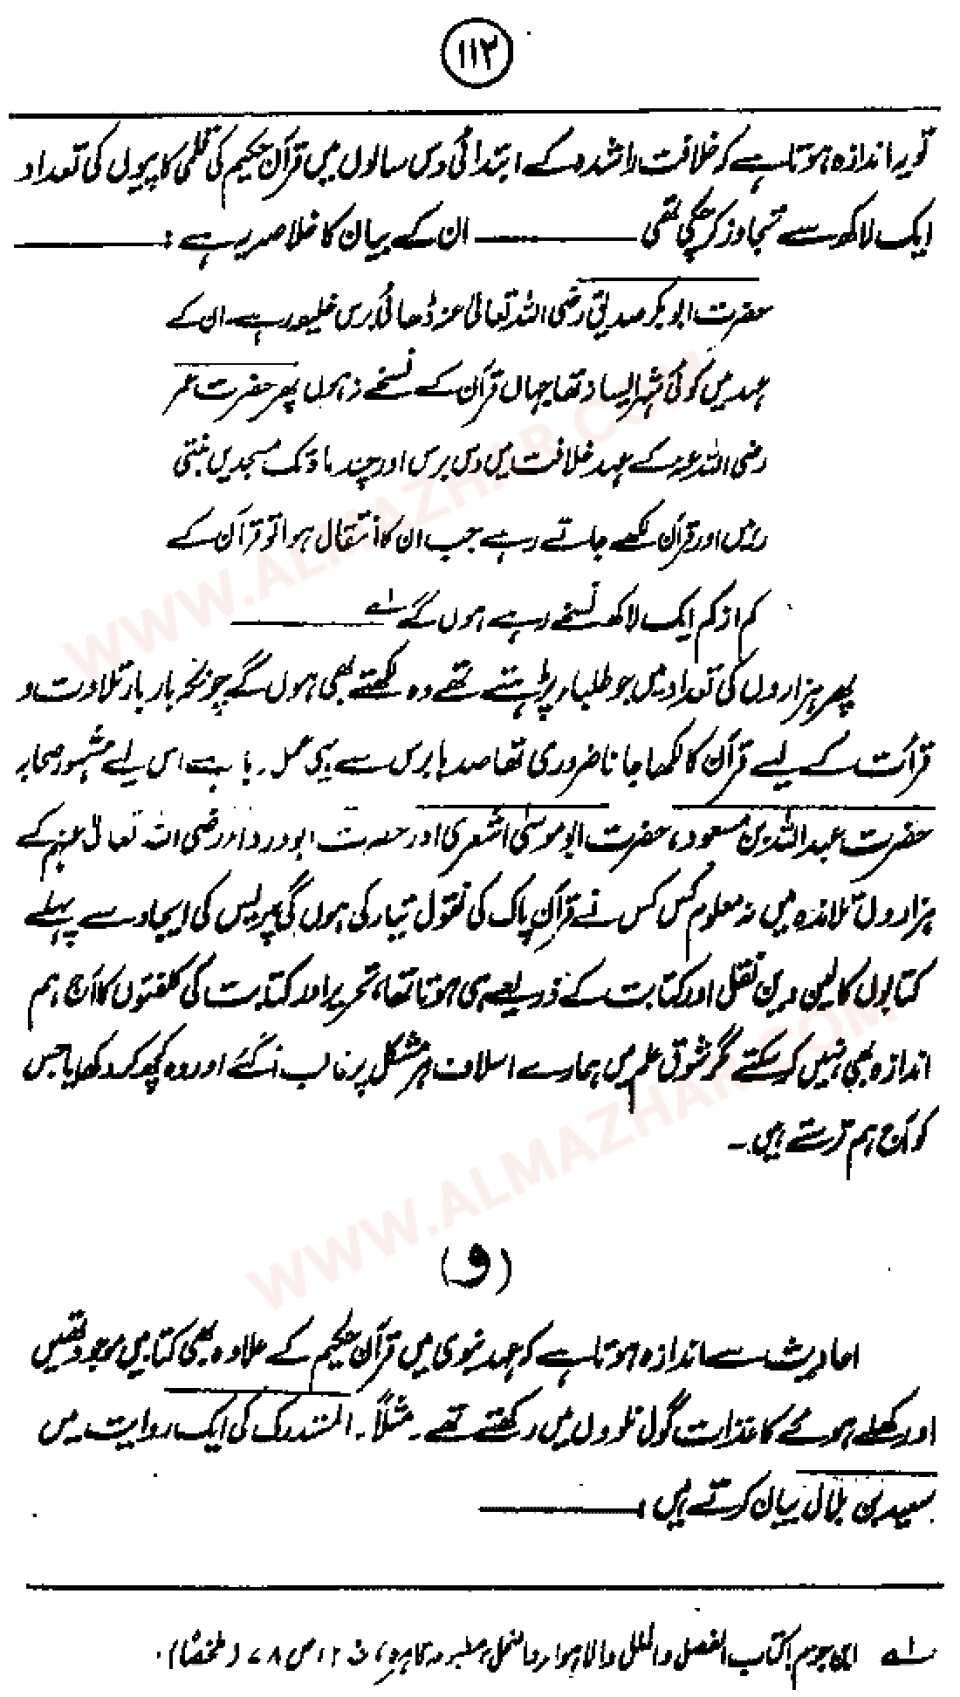 ۱۱۲
تو یہ اندازہ ہوتا ہے کہ خلافت راشدہ کے ابتدائی دس سالوں میں قرآن حکیم کی قلمی کاپیوں کی تعداد
ایک لاکھ سے تجاوز کر چکی تھی ـــــــ ان کے بیان کا خلاصہ یہ ہے : ـــــــ
حضرت ابوبکر صدیق رضی اللہ تعالیٰ عنہ ڈھائی برس خلیفہ رہے۔ ان کے
عہد میں کوئی شہر ایسا نہ تھا جہاں قرآن کے نسخے نہ ہوں پھر حضرت عمر
رضی اللہ عنہ کے عہد خلافت میں دس برس اور چند ماہ تک مسجدیں بنتی
رہیں اور قرآن لکھے جاتے رہے جب ان کا انتقال ہوا تو قرآن کے
کم از کم ایک لاکھ نسخے رہے ہوں گے ؎۱ ـــــــ
پھر ہزاروں کی تعداد میں جو طلباء پڑھتے تھے وہ لکھتے بھی ہوں گے چونکہ بار بار تلاوت و
قرأت کے لیے قرآن کا لکھا جانا ضروری تھا صدہا برس سے یہی عمل رہا ہے اس لیے مشہور صحابہ
حضرت عبداللہ بن مسعود، حضرت ابو موسیٰ اشعری اور حضرت ابو درداء رضی اللہ تعالیٰ عنہم کے
ہزاروں تلامذہ میں نہ معلوم کس کس نے قرآن پاک کی نقول تیار کی ہوں گی پریس کی ایجاد سے پہلے
کتابوں کا لین دین نقل اور کتابت کے ذریعے ہی ہوتا تھا، تحریر اور کتابت کی کلفتوں کا آج ہم
اندازہ بھی نہیں کر سکتے مگر شوق علم میں ہمارے اسلاف ہر مشکل پر غالب آ گئے اور وہ کچھ کر دکھایا جس
کو آج ہم ترستے ہیں۔
(و)
احادیث سے اندازہ ہوتا ہے کہ عہد نبوی میں قرآن حکیم کے علاوہ بھی کتابیں موجود تھیں
اور لکھے ہوئے کاغذات گول نلووں میں رکھتے تھے۔ مثلاً۔ المستدرک کی ایک روایت میں
سعید بن ہلال بیان کرتے ہیں : ـــــــ
؎۱ ابن حزم : کتاب الفصل و الملل والاہواء والنحل، مطبوعہ قاہرہ، ج ۲، ص ۷۸ (ملخصاً)۔
WWW.ALMAZHAR.COM
WWW.ALMAZHAR.COM